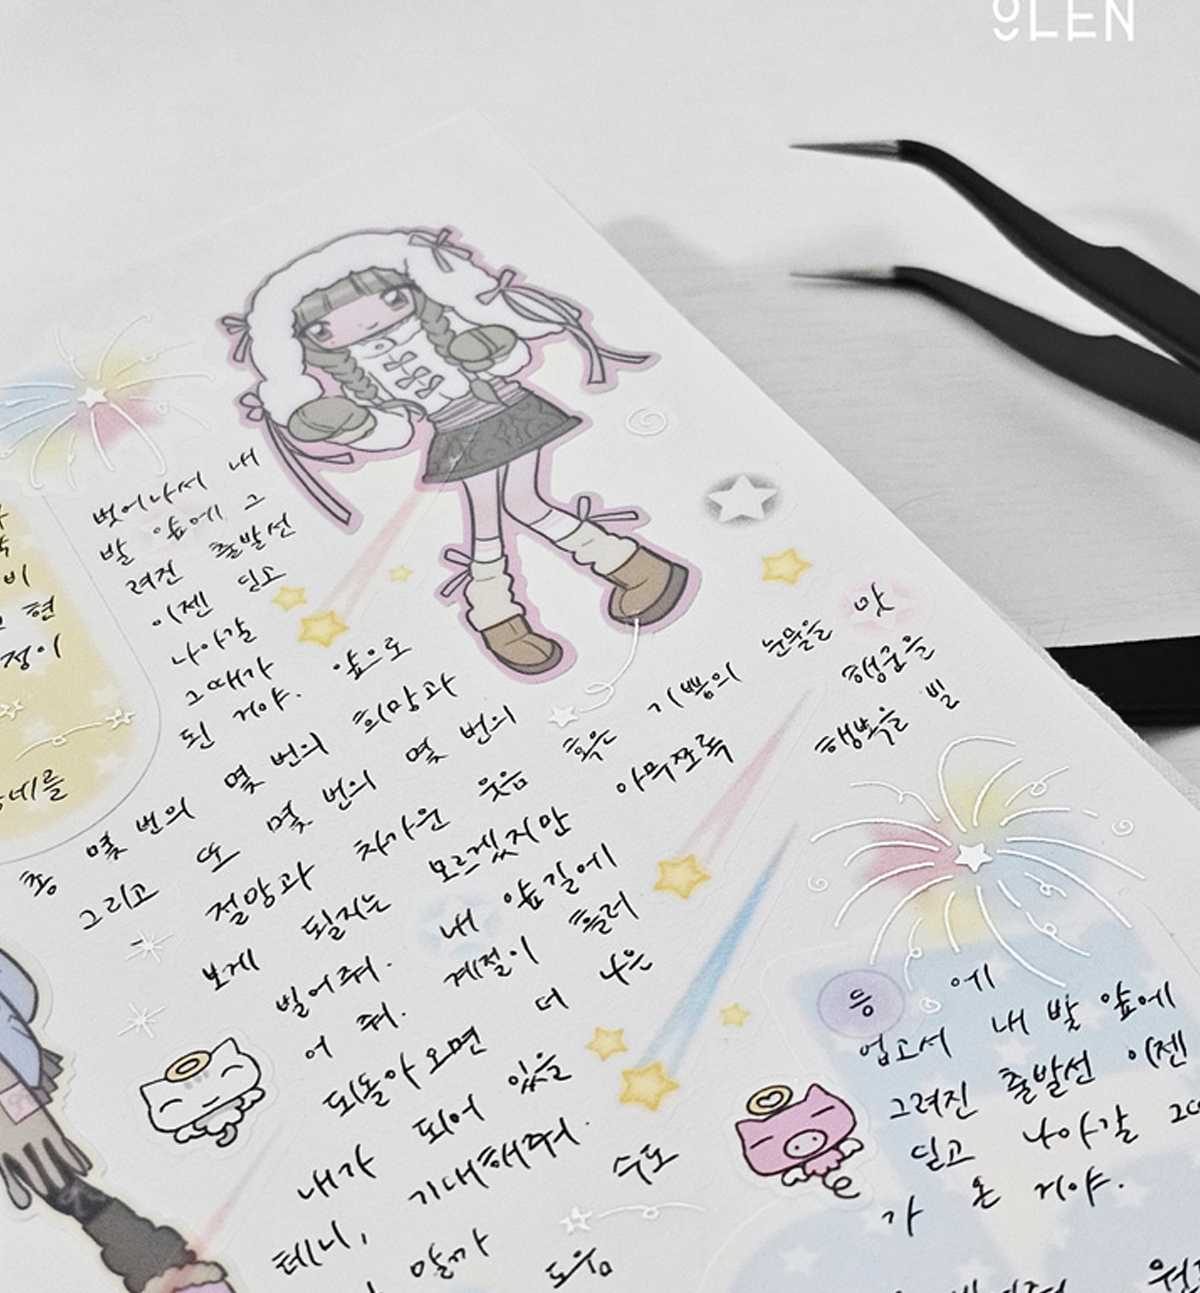 OLEN
벗어나서 내
발 앞에 그
려진 출발선
이젠 딛고
나아갈
그때가
된 거야. 앞으로
비
현
정이
네를
총 몇 번의 몇 번의 희망과
그리고 또 몇 번의 몇 번의
절망과 차가운 웃음 혹은 기쁨의 눈물을 맛
보게 될지는 모르겠지만 아무쪼록 행운을
빌어줘. 내 앞길에 행복을 빌
어 줘. 계절이 흘러
되돌아오면 더 나은
내가 되어 있을
테니, 기대해줘.
말까 수도
도움
등에
업고서 내 발 앞에
그려진 출발선 이젠
딛고 나아갈 그때
가 온 거야.